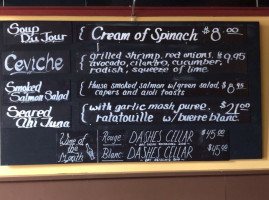 Soup Du Jour { Cream of Spinach $8.00
Ceviche { grilled shrimp, red onions, $9.95
avocado, cilantro, cucumber,
radish, squeeze of lime
Smoked Salmon Salad { House smoked salmon w/green salad, $8.95
capers and aioli toasts
Seared Ahi Tuna { with garlic mash puree. $21.00
ratatouille w/buerre blanc
Wine of the Month
Rouge DASHES CELLAR $45.00
Blanc DASHES CELLAR $45.00